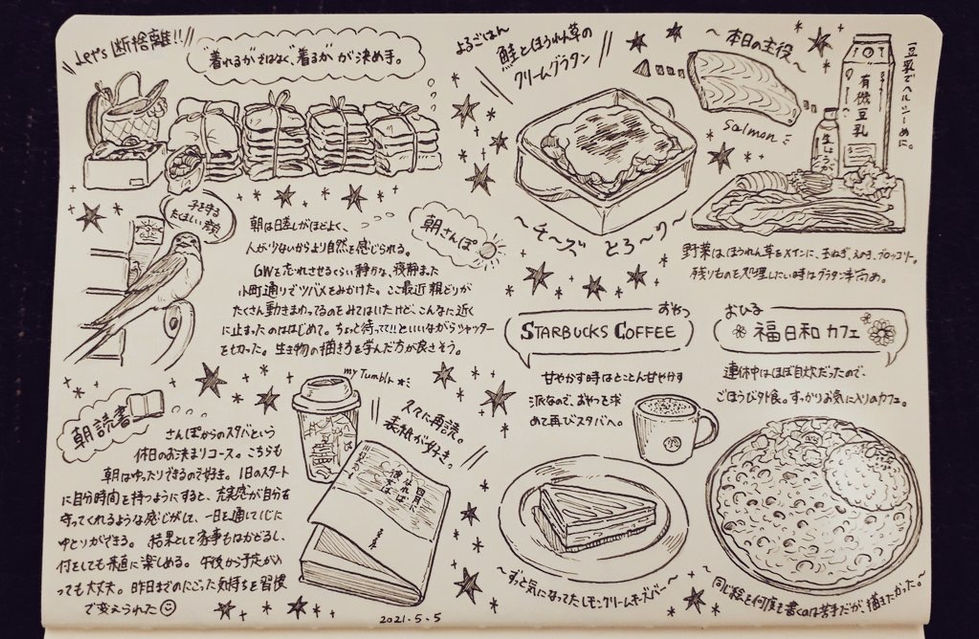 Let's 断捨離!!
"着れるか"ではなく、"着るか"が決め手。
子を守る
たくましい背中
朝さんぽ
朝は日差しがほどよく、
人が少ないからより自然を感じられる。
GWを忘れさせるくらい静かな、後静また
小町通りでツバメをみかけた。ここ最近 親どりが
たくさん動きまわってるのをみてはいたけど、こんなに近く
に止まったのははじめて。ちょっと待って!!といいながらシャッター
を切った。生き物の描き方を学んだ方が良さそう。
朝読書
さんぽからのスタバという
休日のお決まりコース。こちらも
朝はゆったりできるので好き。1日のスタート
に自分時間を持つようにすると、充実感が自分を
守ってくれるような感じがして、一日を通して心に
ゆとりができる。結果として家事もはかどるし、
何をしても素直に楽しめる。午後から予定が入
っても大丈夫。昨日までのにごった気持ちを習慣
で変えられた
my Tumblr
久々に再読。
表紙が好き。
四月に
なれば
彼女は
2021.5.5
よるごはん
鮭とほうれん草の
クリームグラタン
〜本日の主役〜
Salmon
豆乳でヘルシーめに。
有機豆乳
〜チーズ とろ〜り〜
野菜はほうれん草をメインに、玉ねぎ、えのき、ブロッコリー。
残りものを処理したい時はグラタン率高め。
おやつ
STARBUCKS COFFEE
甘やかす時はとことん甘やかす
派なので、おやつを求
めて再びスタバへ。
〜ずっと気になってたレモンクリームチーズバー〜
おひる
福日和カフェ
連休中はほぼ自炊だったので、
ごほうび外食。すっかりお気に入りのカフェ。
同じ絵を何度も書くのは苦手だが、描きたかった。〜